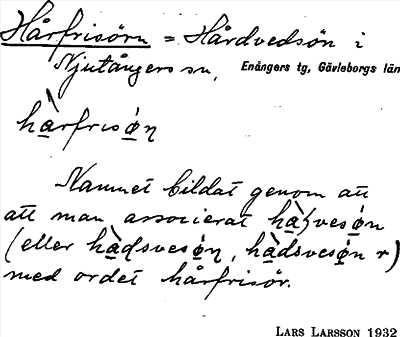 Hårfrisörn = Hårdvedsön i
Njutångers sn, Enångers tg, Gävleborgs län
hàrfrisǿn
Namnet bildat genom att
att man associerat vesǿn
(eller hàdsvesǿn, hàdsvesǿn r)
med ordet hårfrisör.
LARS LARSSON 1932